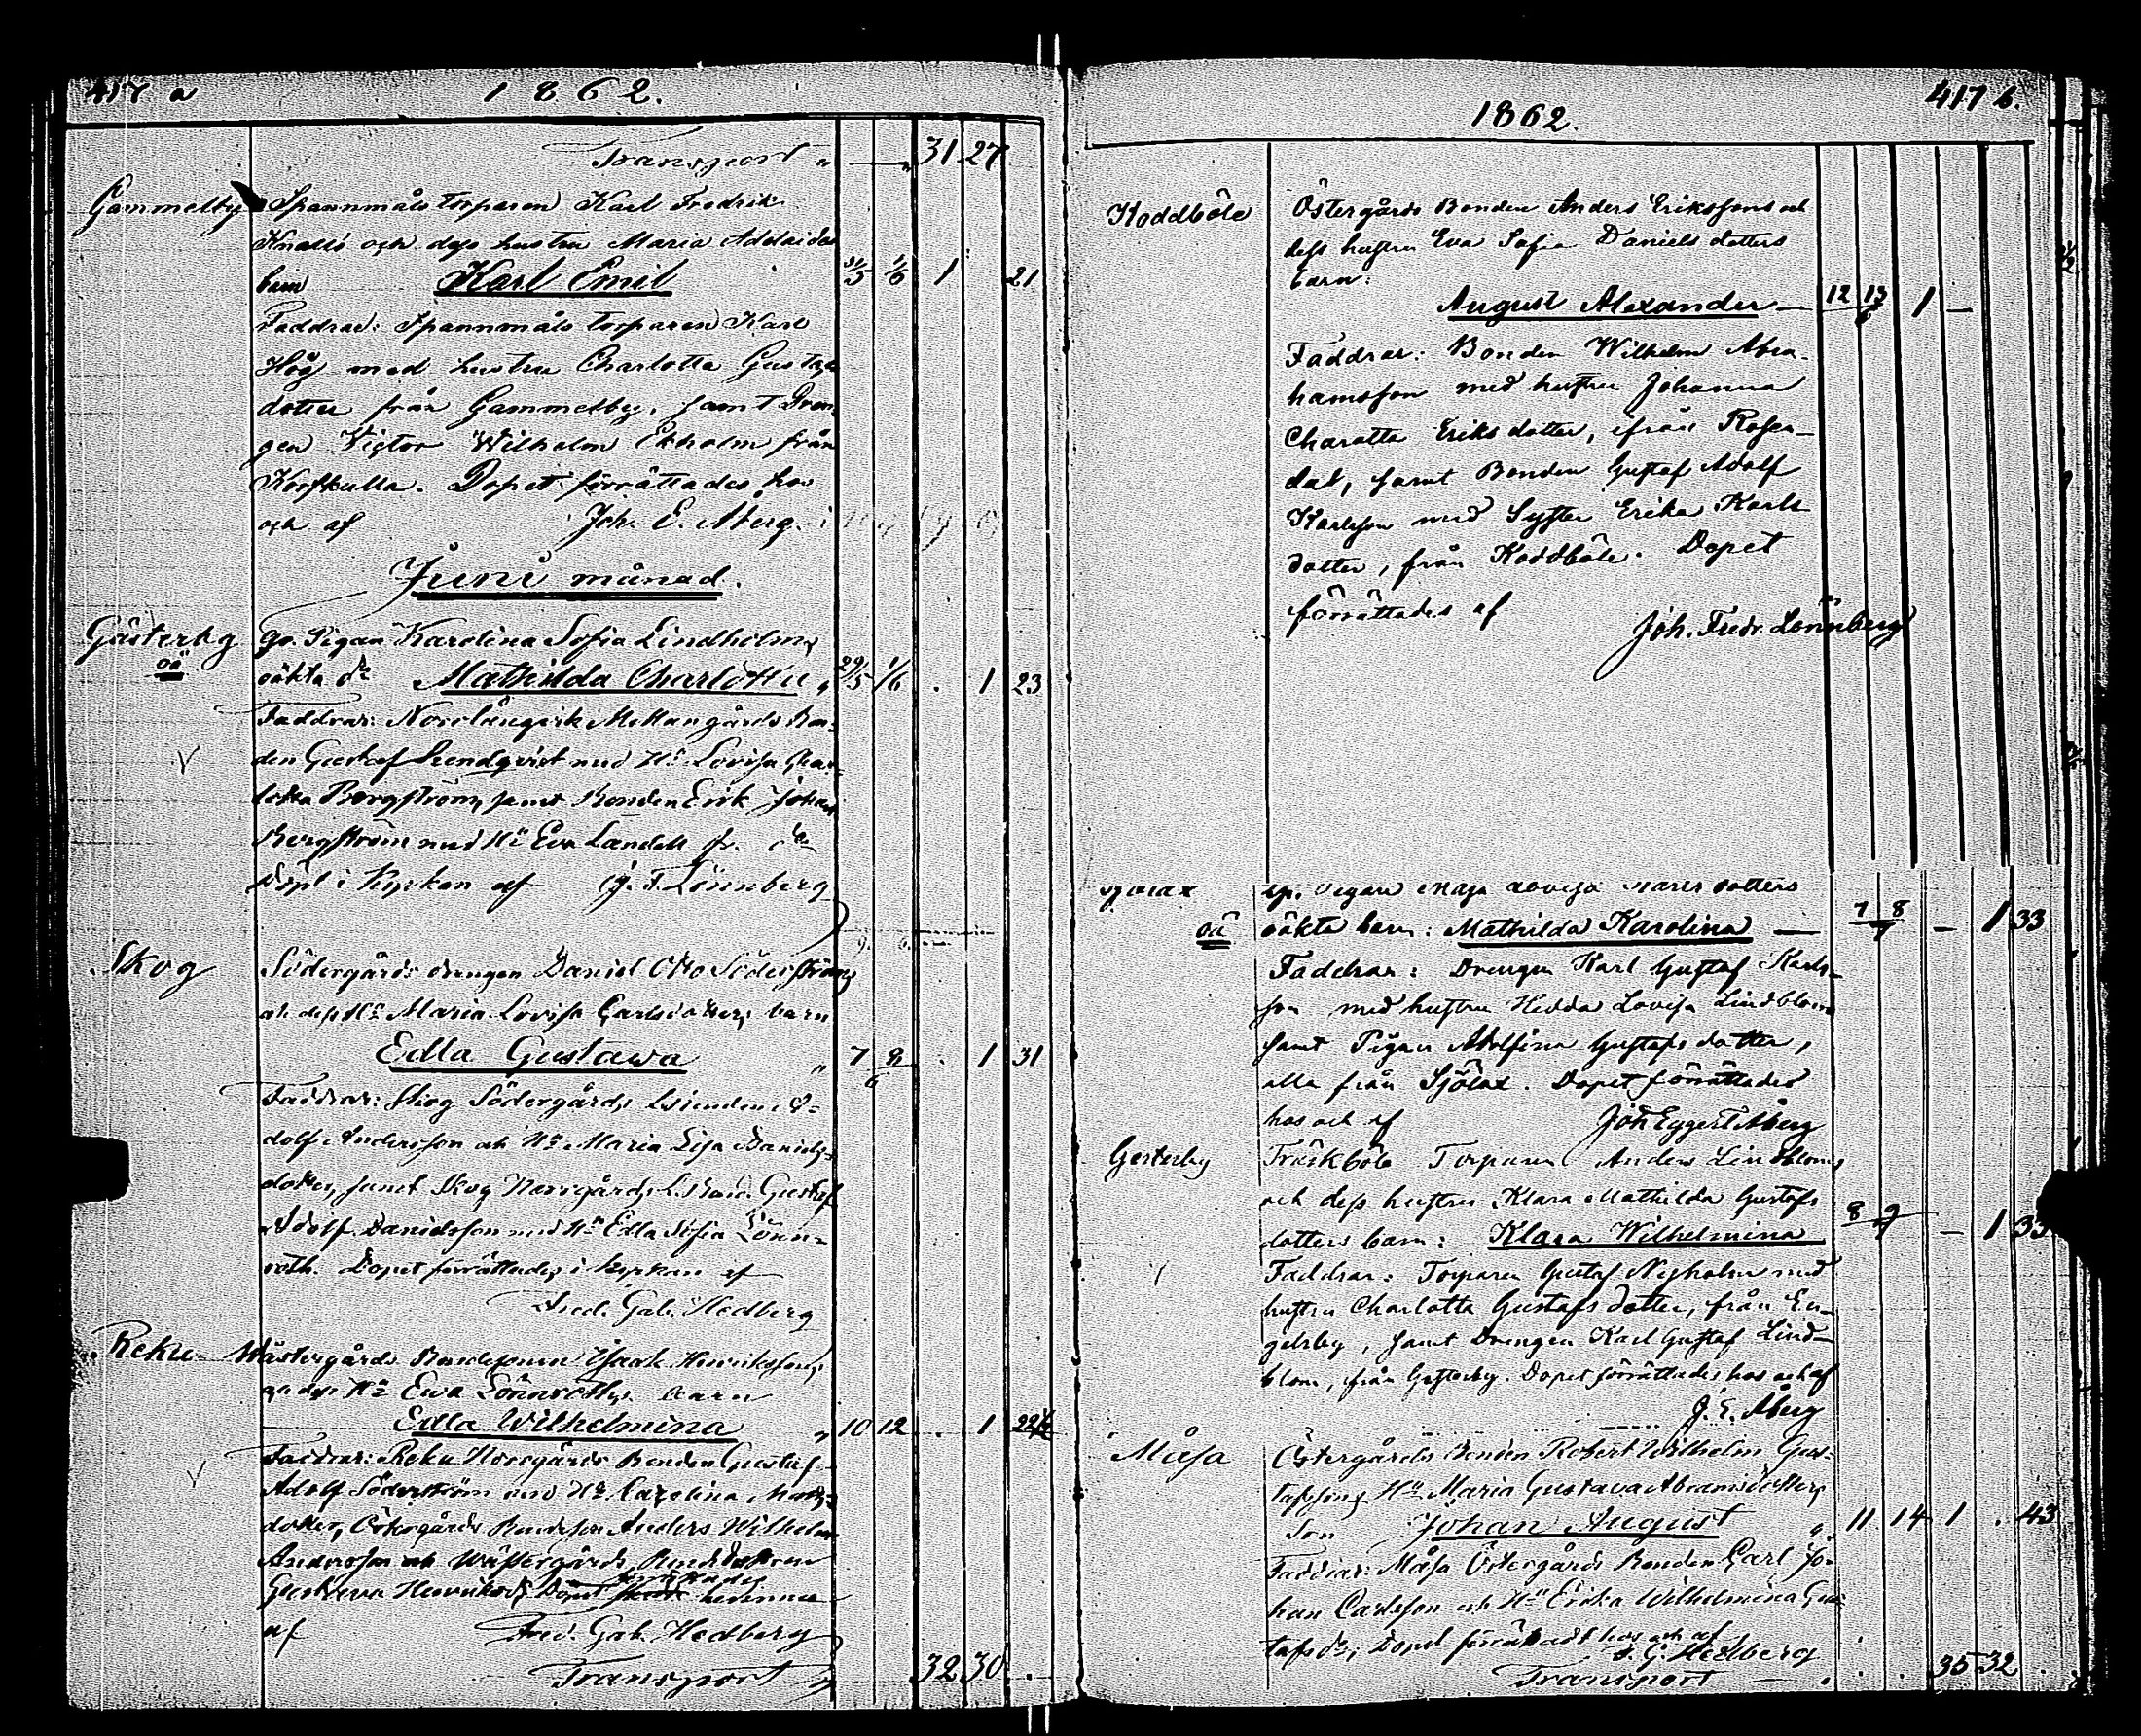 417 a 1862.
Transport " — " 31 27
Gammelby Spannmåls Torparen Karl Fredrik
och dess hustru Maria Adelaides
barn Karl Emil 31/5 1/6 1 21
Faddrar: Spannmåls Torparen Karl
Hög med hustru Charlotta Gustafs
dotter från Gammelby, samt Dren
gen Victor Wilhelm Ekholm från
Korskulla. Dopet förrättades hos
och af Joh. E. Åberg.
Juni månad.
Gästerby gv. Pigan Karolina Sofia Lindholms
oä oäkta dr Mathilda Charlotta " 29/5 1/6 . 1 23
Faddrar: Norrlångvik Mellangårds Bon-
den Gustaf Sundqvist med Hu Lovisa Char-
lotta Bergström, samt Bonden Erik Johan
Bergström med Hu Eva Landell fr. do
Döpt i Kyrkan af J. F. Lönnberg
Skog Södergårds drengen Daniel Otto Söderströms
och dess Hu Maria Lovisa Carlsdotters barn
Edla Gustawa " 7 8/6 . 1 31
Faddrar: Skog Södergårds Bonden A-
dolf Andersson och Hu Maria Lisa Daniels-
dotter, samt Skog Norrgårds Bond. Gustaf
Adolf Danielsson med Hu Edla Sofia Lönn-
roth. Dopet förrättades i Kyrkan af
Fred. Gab. Hedberg
Reku Wästergårds Bondesonen Isaak Henrikssons
och dess Hu Ewa Lönnroths barn
Edla Wilhelmina " 10 12 . 1 22
Faddrar: Reku Norrgårds Bonden Gustaf
Adolf Söderström med Hu Carolina Mats-
dotter, Östergårds Bondeson Anders Wilhelm
Andersson och Wästergårds Bondedottren
Gustava Henriksdr, Dopet förrättades hemma
af Fred. Gab. Hedberg
Transport " 32 30 .
417 b.
1862.
Koddböle Östergårds Bonden Anders Erikssons och
dess hustru Eva Sofia Daniels dotters
barn:
August Alexander — 12 13/6 1 —
Faddrar: Bonden Wilhelm Abra-
hamsson med hustru Johanna
Charotta Eriks dotter, ifrån Rosen-
dal, samt Bonden Gustaf Adolf
Karlsson med Syster Erika Karls
dotter, från Koddböle. Dopet
förrättades af
Joh. Fredr. Lönnberg
Sjölax gv. Pigan Maja Lovisa Karls dotters
oä oäkta barn: Mathilda Karolina — 7 8/7 — 1 33
Faddrar: Drengen Karl Gustaf Karls-
son med hustru Hedda Lovisa Lindblom
samt Pigan Adolfina Gustafs dotter,
alla från Sjölax. Dopet förrättades
hos och af Joh Eggert Åberg
Gesterby Träskböle Torparen Anders Lindbloms
och dess hustru Klara Mathilda Gustafs
dotters barn: Klara Wilhelmina 8 9/7 — 1 33
Faddrar: Torparen Gustaf Nyholm med
hustru Charlotta Gustafs dotter, från En-
gelsby, samt Drengen Karl Gustaf Lind-
blom, från Gesterby. Dopet förrättades hos och af
J. E. Åberg
Måsa Östergårds Bonden Robert Wilhelm Gus-
tafssons Hu Maria Gustava Abramsdotters
Son Johan August " 11 14 1 . 43
Faddrar: Måsa Östergårds Bonden Carl Jo-
han Carlsson och Hu Erika Wilhelmina Gus-
tafs dr, Dopet förrättadt hos och af
F. G. Hedberg
Transport — . . . 35 32 .